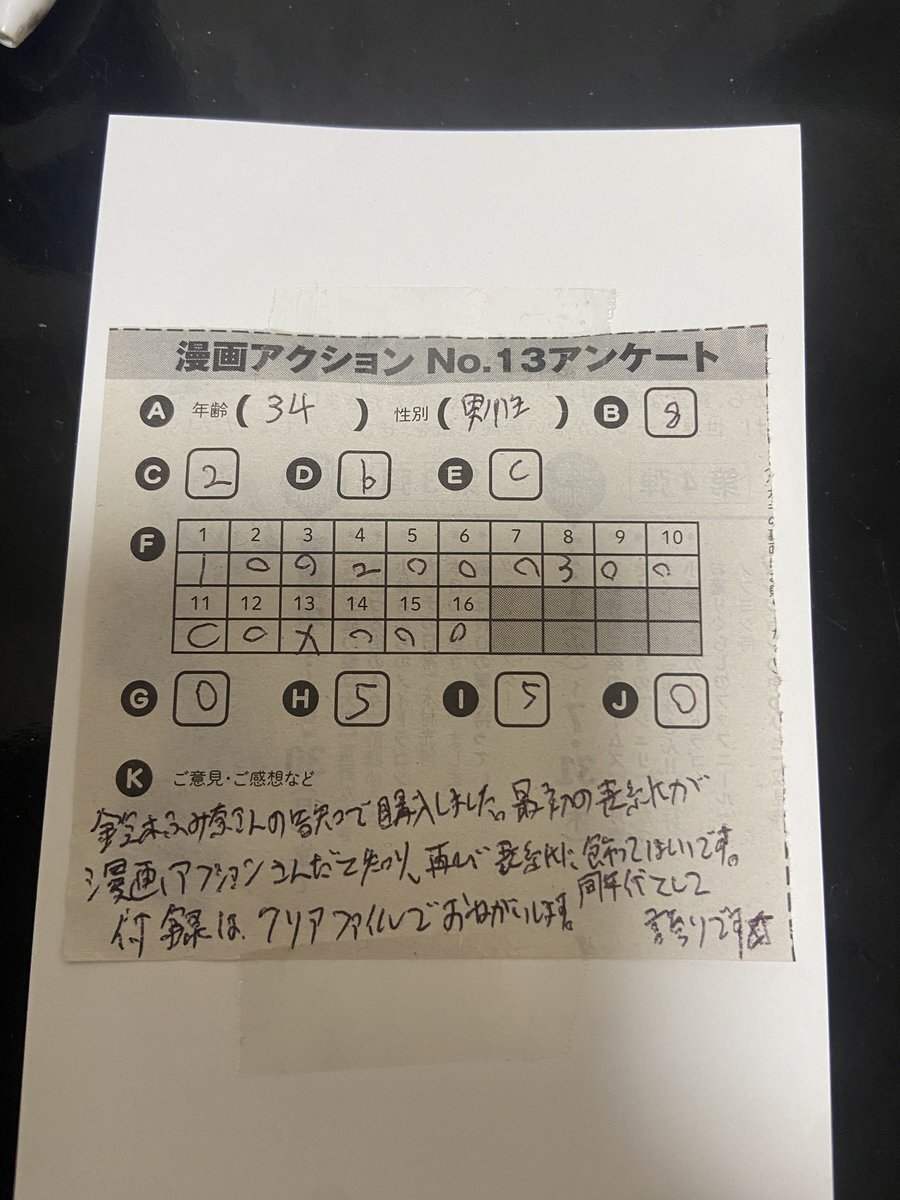 漫画アクション No.13アンケート
A 年齢 ( 34 ) 性別 ( 男性 ) B 8
C 2 D b E C
F 1 2 3 4 5 6 7 8 9 10
1 0 0 2 0 0 0 3 0 0
11 12 13 14 15 16
0 0 X 0 0 0
G 0 H 5 I 5 J 0
K ご意見・ご感想など
鈴木ふみ奈さんの告知で購入しました。最初の表紙が
漫画アクションさんだて知り、再び表紙に飾ってほしいです。
同年代として
付録は、クリアファイルでおねがいします。 誇りです